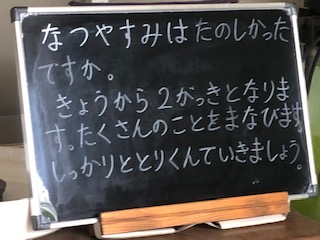 なつやすみはたのしかった
ですか。
きょうから2がっきとなりま
す。たくさんのことをまなびます。
しっかりととりくんでいきましょう。